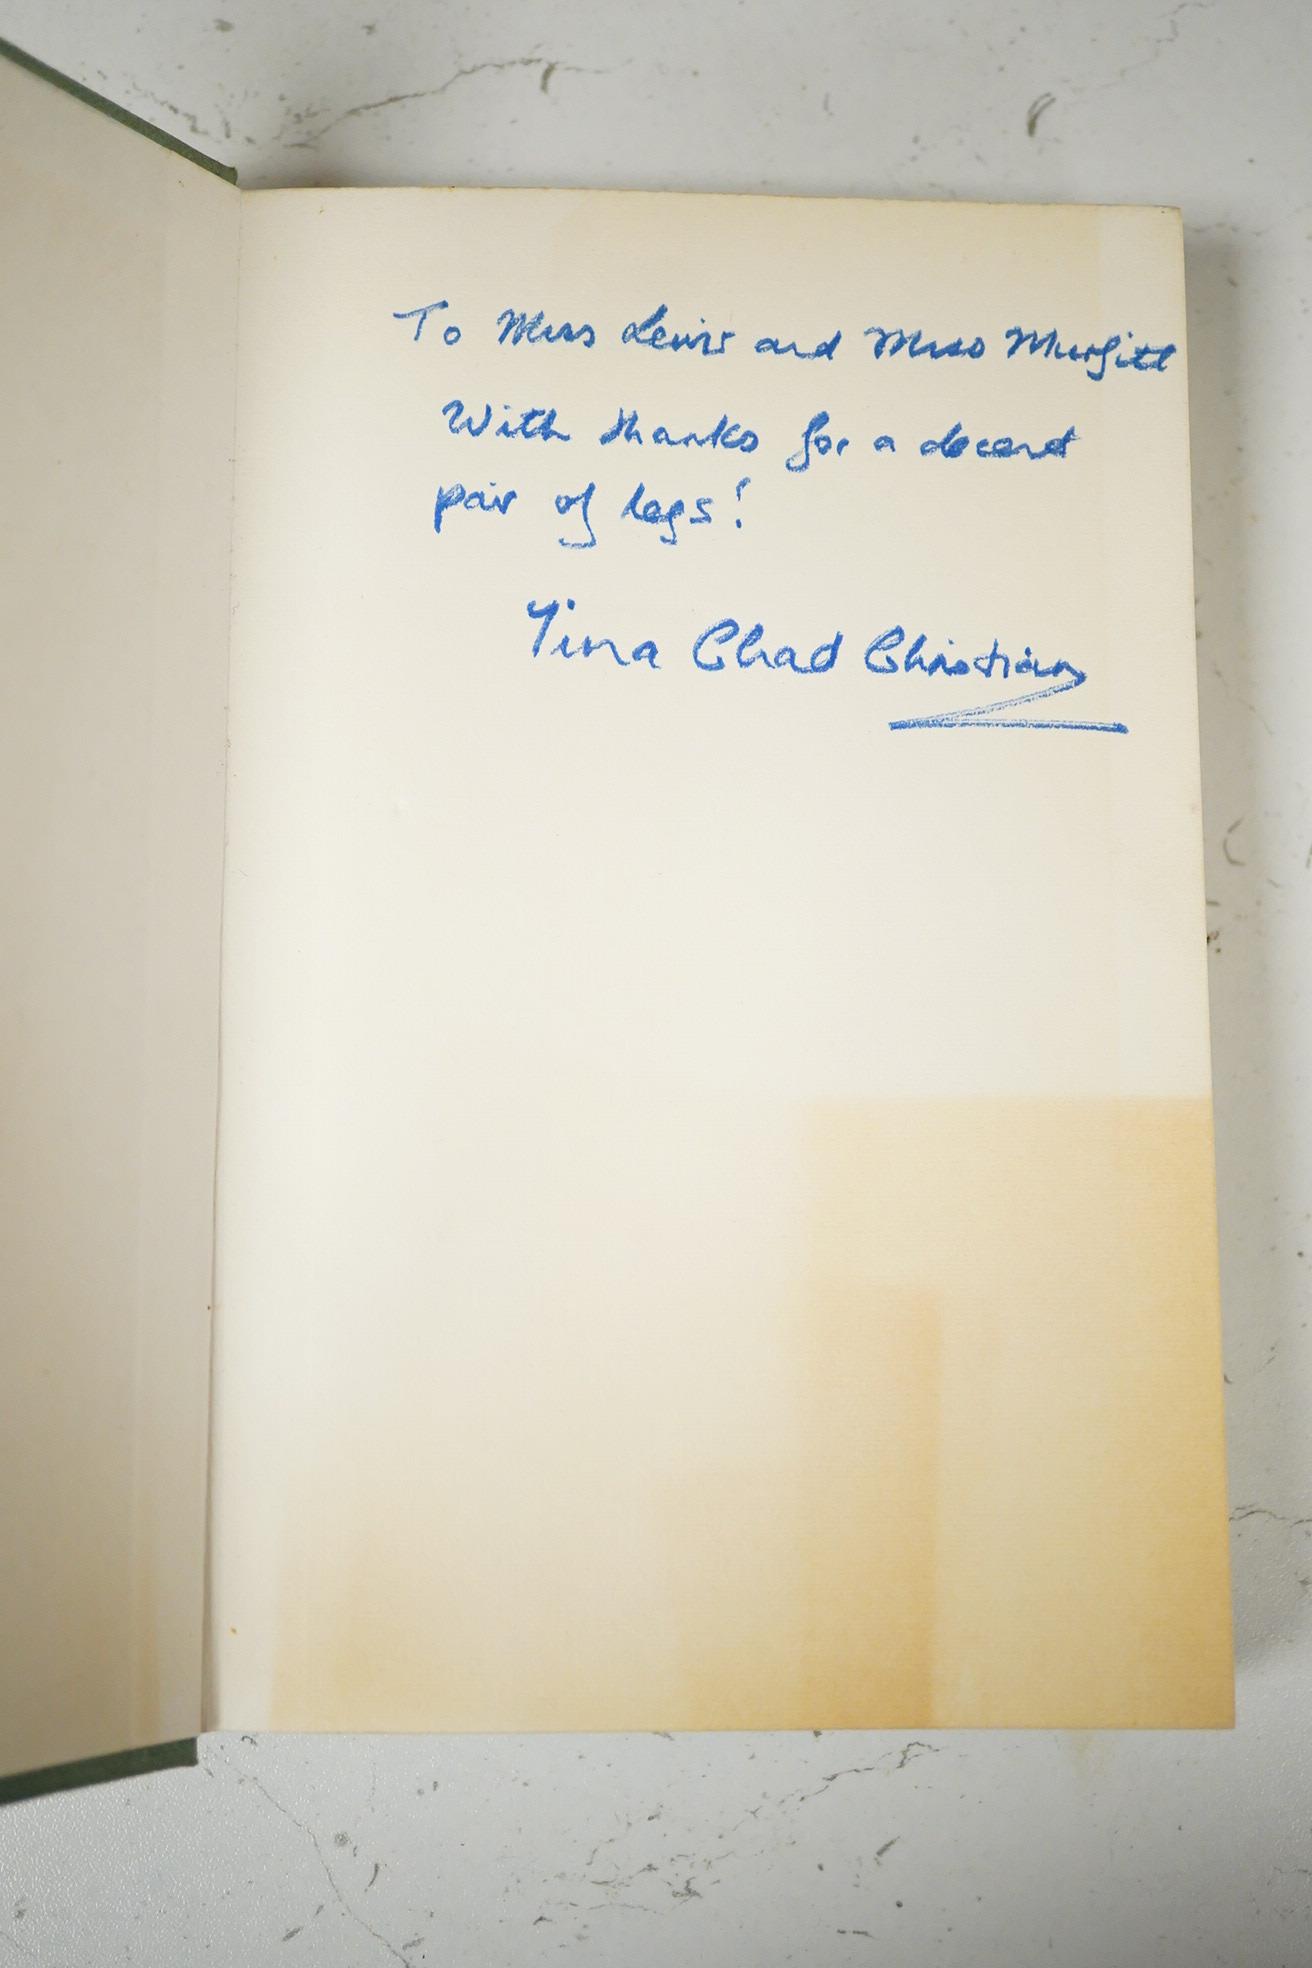 To Miss Lewis and Miss Murfitt
With thanks for a decent
pair of legs!
Tina Chad Christian